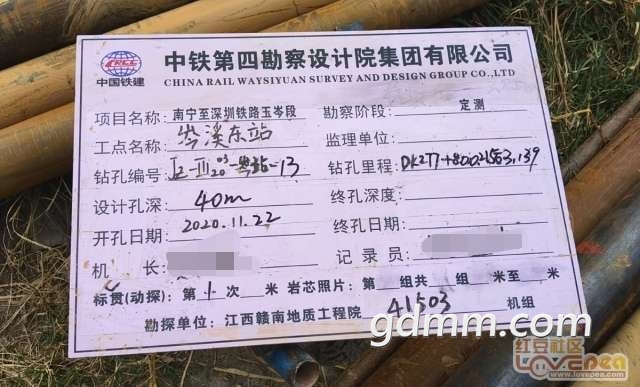 中国铁建
中铁第四勘察设计院集团有限公司
CHINA RAIL WAYSIYUAN SURVEY AND DESIGN GROUP CO.,LTD
项目名称: 南宁至深圳铁路玉岑段 勘察阶段: 定测
工点名称: 岑溪东站 监理单位:
钻孔编号: 钻孔里程:
设计孔深: 40m 终孔深度:
开孔日期: 2020.11.22 终孔日期:
机 长 记 录 员
标贯(动探): 第 1 次 米 岩芯照片: 第 组共 组 米至 米
勘探单位: 江西赣南地质工程院 41503 机组
gdmm.com
红豆社区
Lovepea
www.lovepea.com